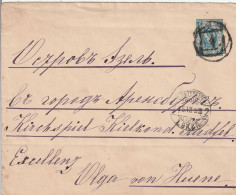 Островъ Эзель.
въ городъ Аренсбургъ
Kirchspiel Kielkond.
Excellenz
Olga von Huene